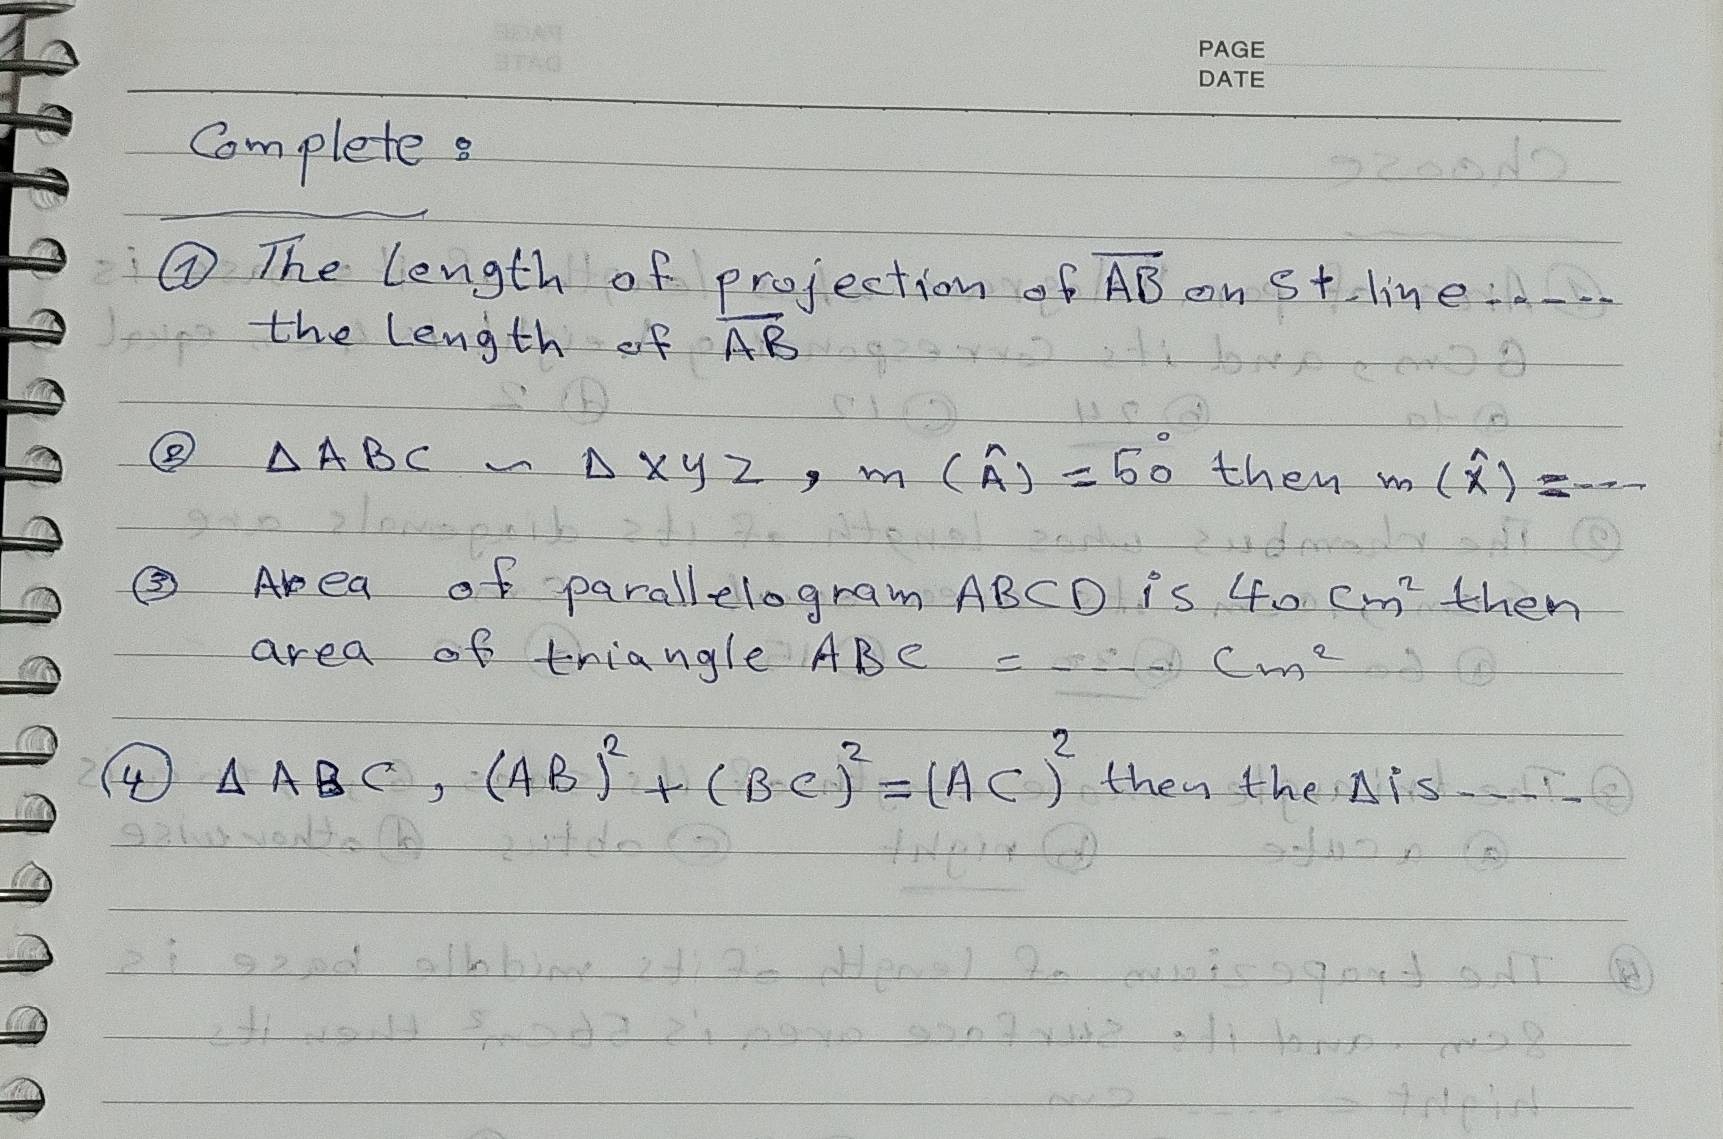 PAGE
DATE
Complete :
① The length of projection of A̅B̅ on st. line -----
the length of A̅B̅
② Δ ABC ~ Δ XYZ , m (Â) = 50° then m (X̂) = ---
③ Area of parallelogram ABCD is 40 cm² then
area of triangle ABC = ---- cm²
④ Δ ABC , (AB)² + (BC)² = (AC)² then the Δ is -----